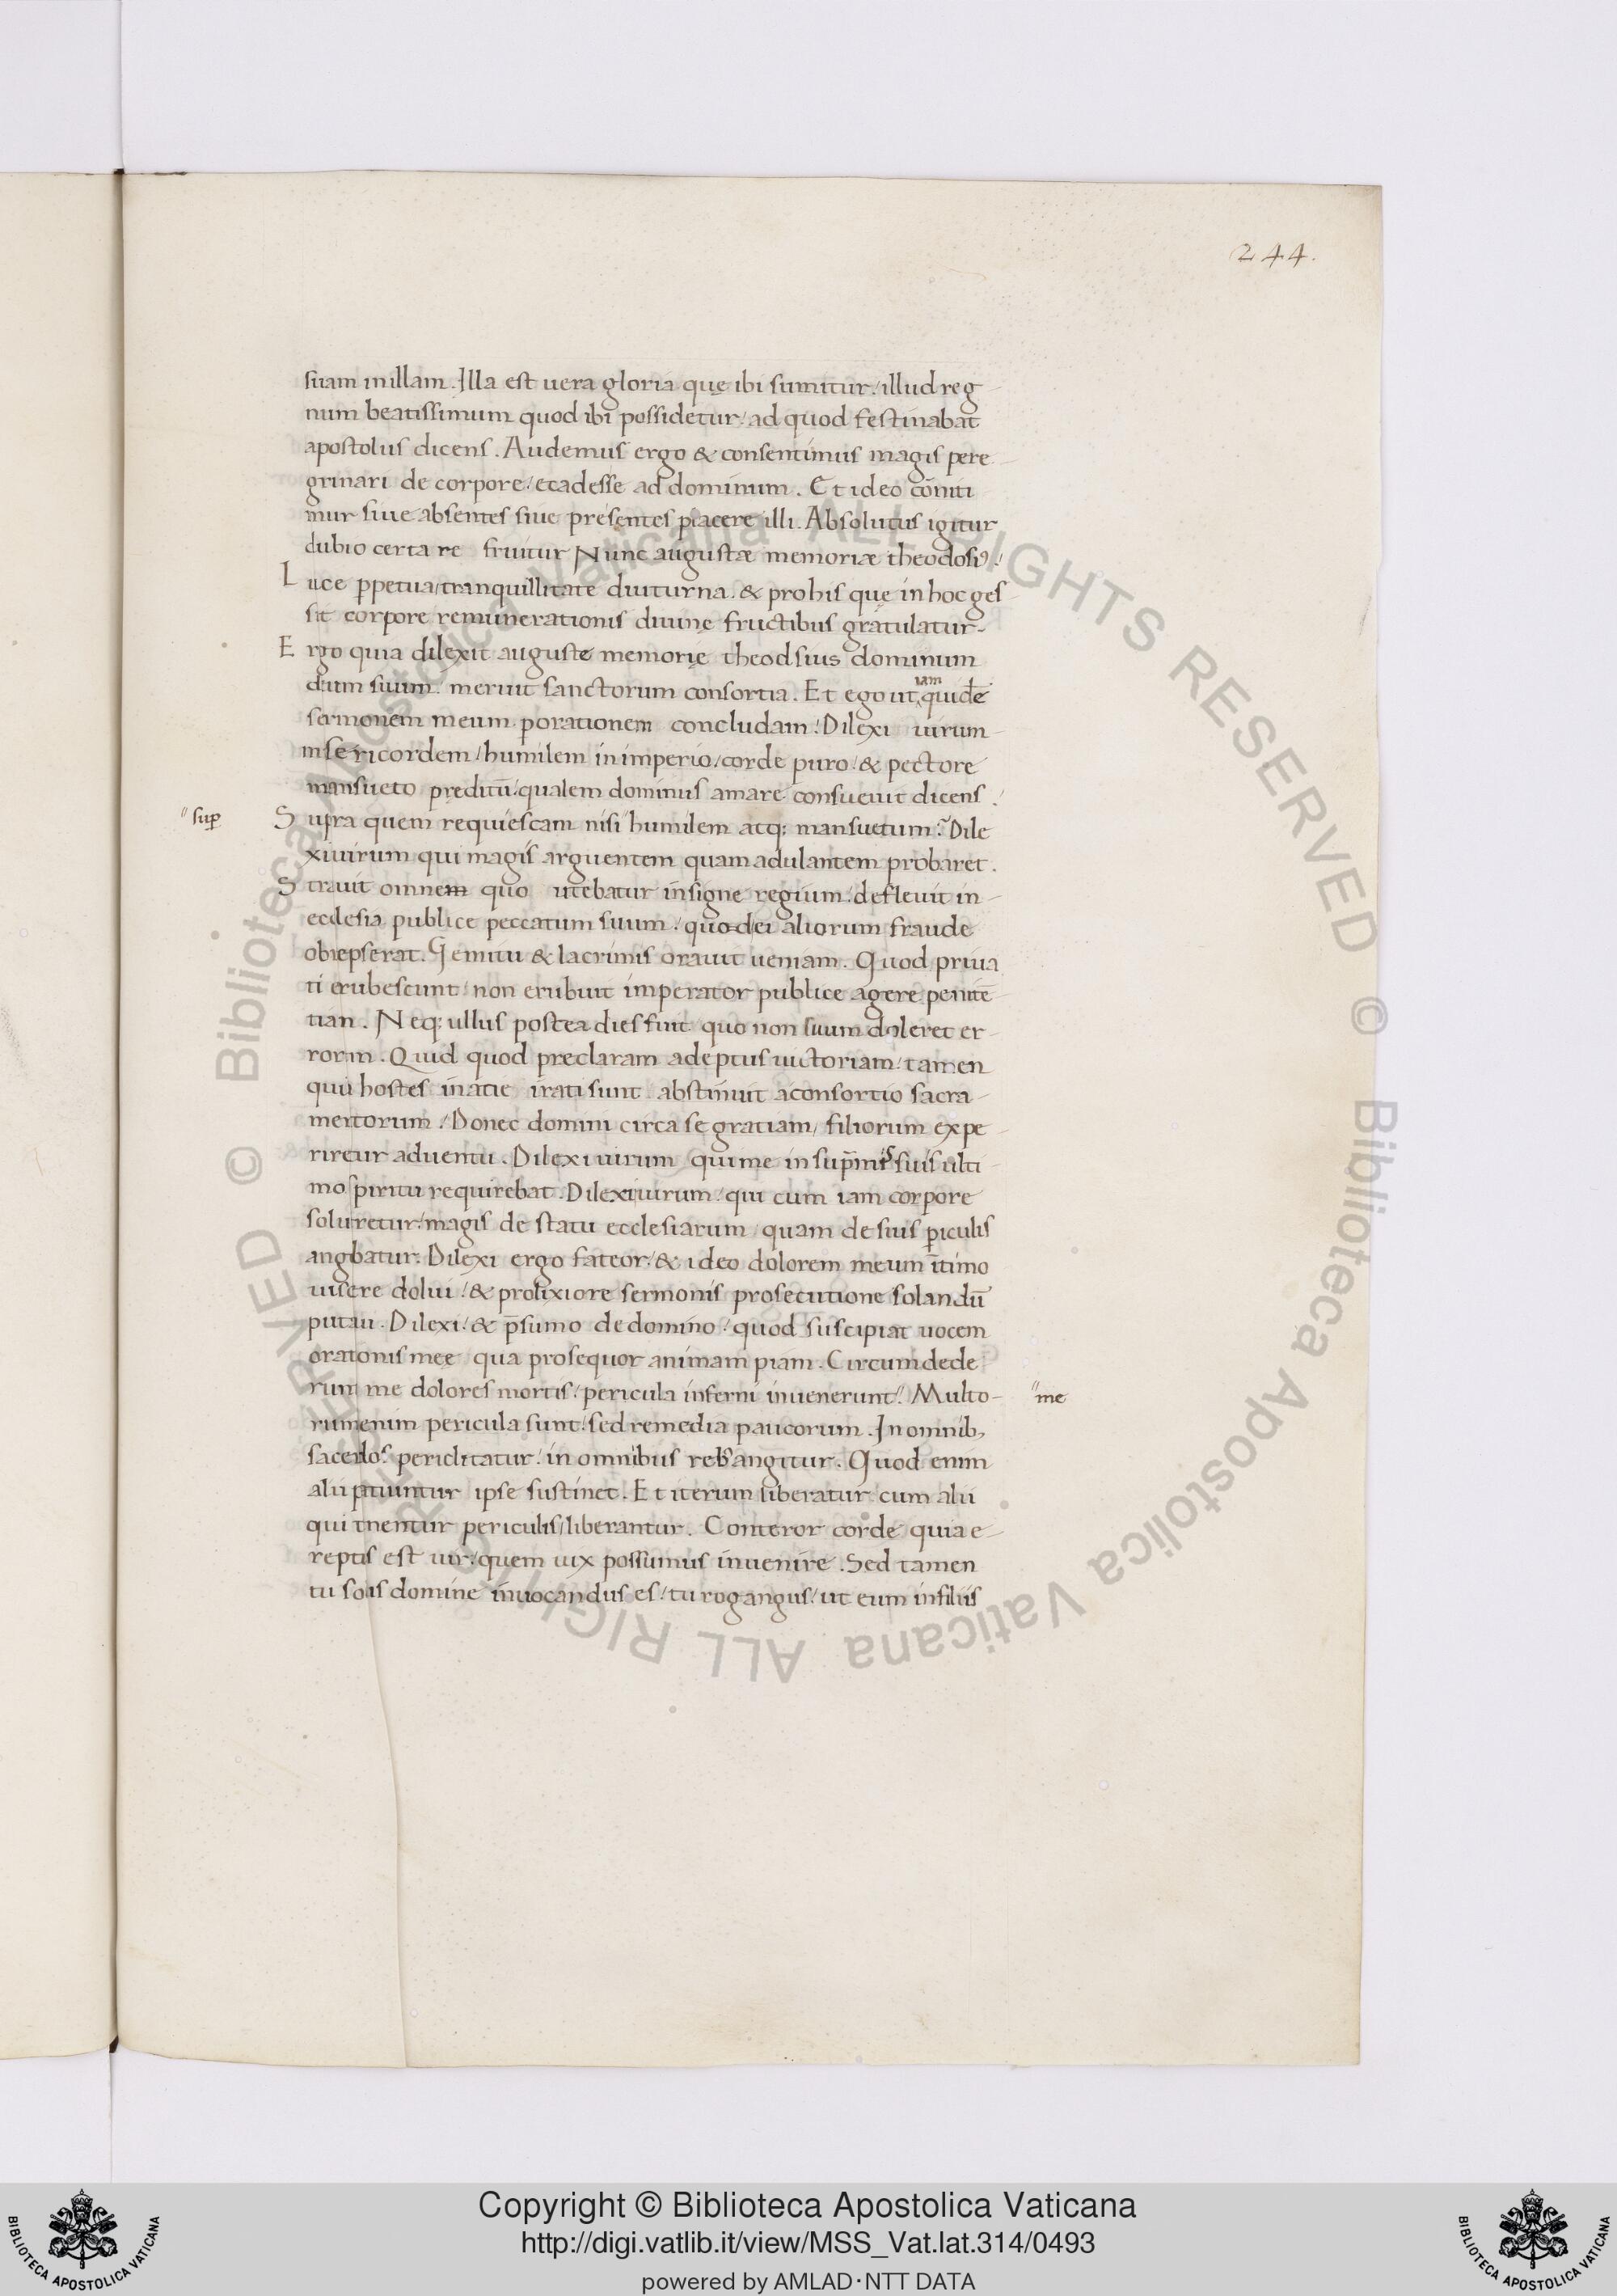 244.
suam inillam. Illa est uera gloria quę ibi sumitur / illud reg
num beatissimum quod ibi possidetur / ad quod festinabat
apostolus dicens. Audemus ergo & consentimus magis pere
grinari de corpore / et adesse ad dominum. Et ideo cōniti
mur siue absentes siue presentes placere illi. Absolutus igitur
dubio certa re fruitur Nunc augustæ memoriæ theodosiꝰ /
Luce ꝑpetua / tranquillitate diuturna. & prohis quę in hoc ges
sit corpore / remunerationis diuine fructibus gratulatur-
Ergo quia dilexit augustę memorię theodsius dominum
deum suum. meruit sanctorum consortia. Et ego ut iam quidē
sermonem meum porationem concludam / Dilexi uirum
msericordem / humilem in imperio / corde puro / & pectore
mansueto pręditū / qualem dominus amare consueuit dicens /
" suꝑ
Supra quem requiescam nisi humilem atq; mansuetum? Dile
xiuirum qui magis arguentem quam adulantem probaret.
Strauit omnem quo utebatur insigne regium / defleuit in
ecclesia publice peccatum suum / quod ei aliorum fraude
obrepserat. Gemitu & lacrimis orauit ueniam. Quod priua
ti erubescunt / non erubuit imperator publice agere penitē
tian. Neq; ullus postea dies fuit quo non suum doleret er
rorm. Quid quod preclaram adeptus uictoriam / tamen
quii hostes inatie irati sunt abstinuit aconsortio sacra
mertorum / Donec domini circa se gratiam / filiorum expe
riretur aduentu. Dilexi uirum quime in sup̄mis suis ulti
mo spiritu requirebat. Dilexi uirum / qui cum iam corpore
solueretur / magis de statu ecclesiarum / quam de suis ꝑiculis
angbatur. Dilexi ergo fateor / & ideo dolorem meum ītimo
uisere dolui / & prolixiore sermonis prosecutione solandū
putaui. Dilexi / & p̄sumo de domino / quod suscipiat uocem
oratonis meę qua prosequor animam piam. Circumdede
runt me dolores mortis / pericula inferni inuenerunt". Multo-
"me
rumenim pericula sunt / sed remedia paucorum. In omnib,
sacerdos periclitatur / in omnibus rebs angitur. Quod enim
alii patiuntur ipse sustinet. Et iterum liberatur cum alii
qui tnentur periculis / liberantur. Conteror corde quia e
reptis est uir / quem uix possumus inuenire. Sed tamen
tu solus domine inuocandus es / tu rogangus / ut eum infiliis
© Biblioteca Apostolica Vaticana ALL RIGHTS RESERVED
© Biblioteca Apostolica Vaticana ALL RIGHTS RESERVED
BIBLIOTECA APOSTOLICA VATICANA
Copyright © Biblioteca Apostolica Vaticana
http://digi.vatlib.it/view/MSS_Vat.lat.314/0493
powered by AMLAD·NTT DATA
BIBLIOTECA APOSTOLICA VATICANA